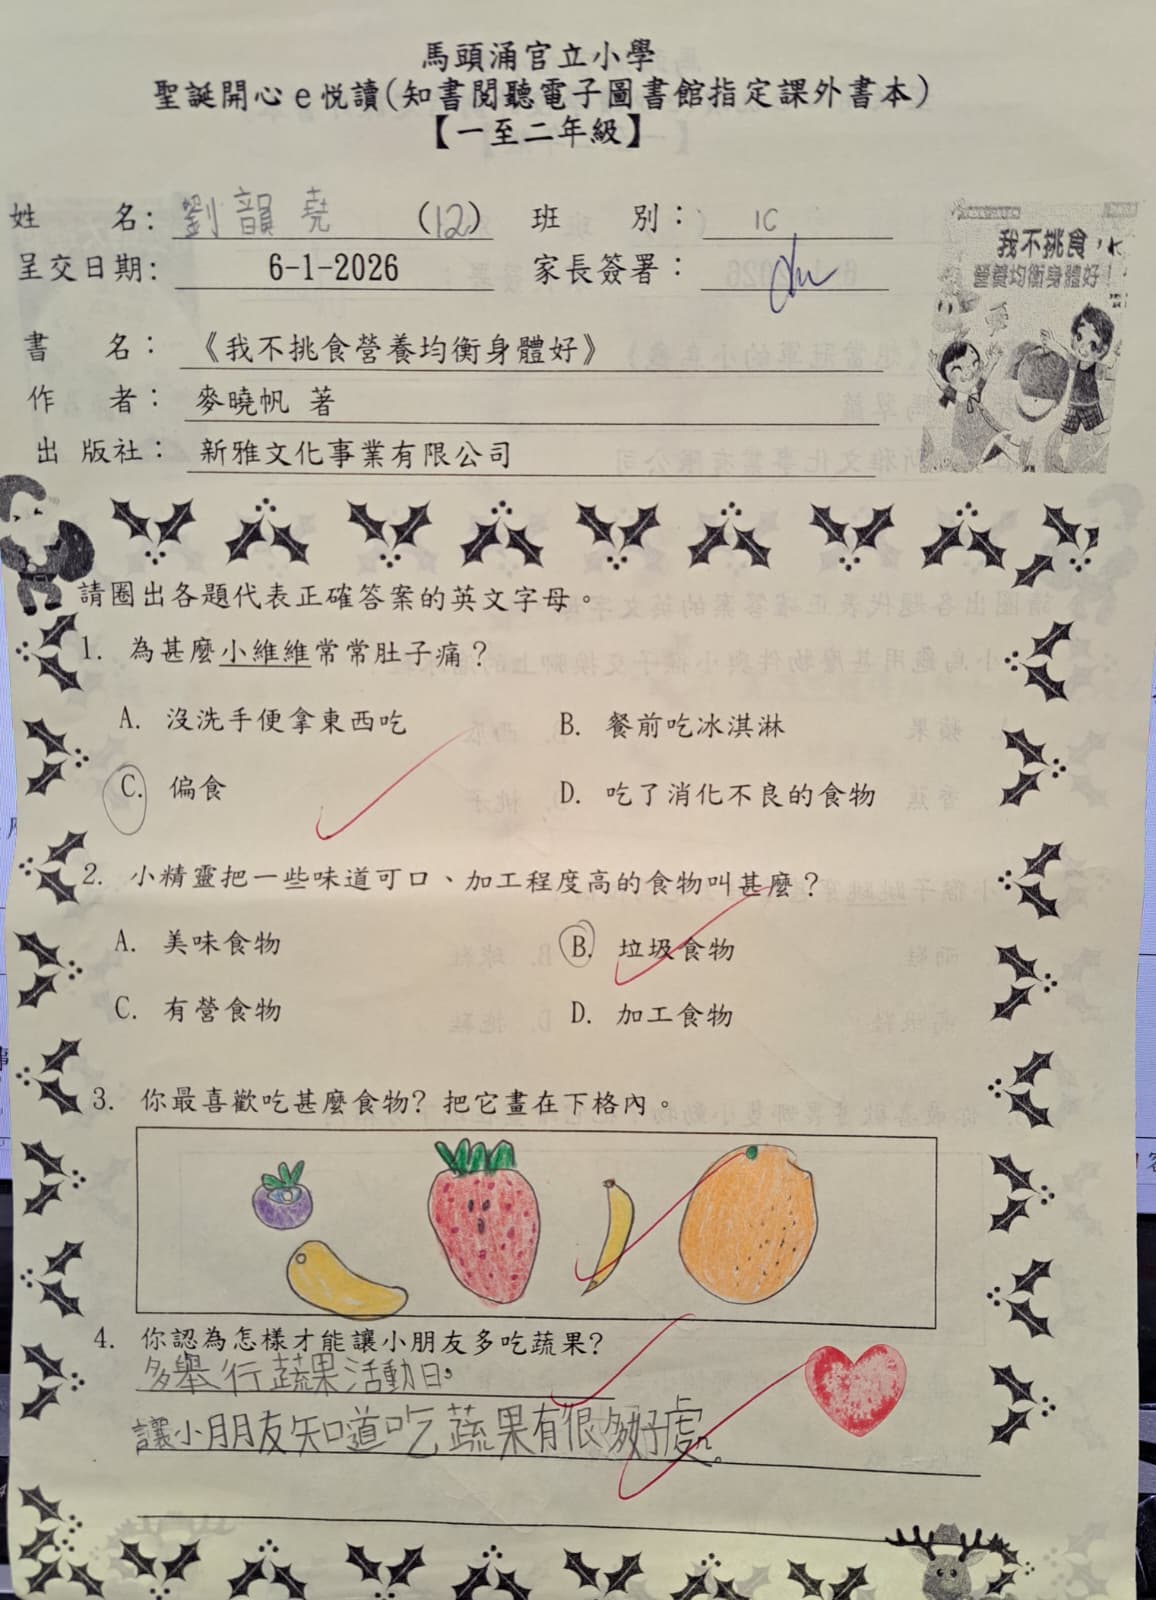 馬頭涌官立小學
聖誕開心e悅讀(知書閱聽電子圖書館指定課外書本)
【一至二年級】
姓 名: 劉韻堯 (12) 班 別: 1C
呈交日期: 6-1-2026 家長簽署:
我不挑食,
營養均衡身體好!
書 名: 《我不挑食營養均衡身體好》
作 者: 麥曉帆 著
出 版社: 新雅文化事業有限公司
請圈出各題代表正確答案的英文字母。
1. 為甚麼小維維常常肚子痛?
A. 沒洗手便拿東西吃 B. 餐前吃冰淇淋
C. 偏食 D. 吃了消化不良的食物
2. 小精靈把一些味道可口、加工程度高的食物叫甚麼?
A. 美味食物 B. 垃圾食物
C. 有營食物 D. 加工食物
3. 你最喜歡吃甚麼食物? 把它畫在下格內。
4. 你認為怎樣才能讓小朋友多吃蔬果?
多舉行蔬果活動日,
讓小朋友知道吃蔬果有很多好處。